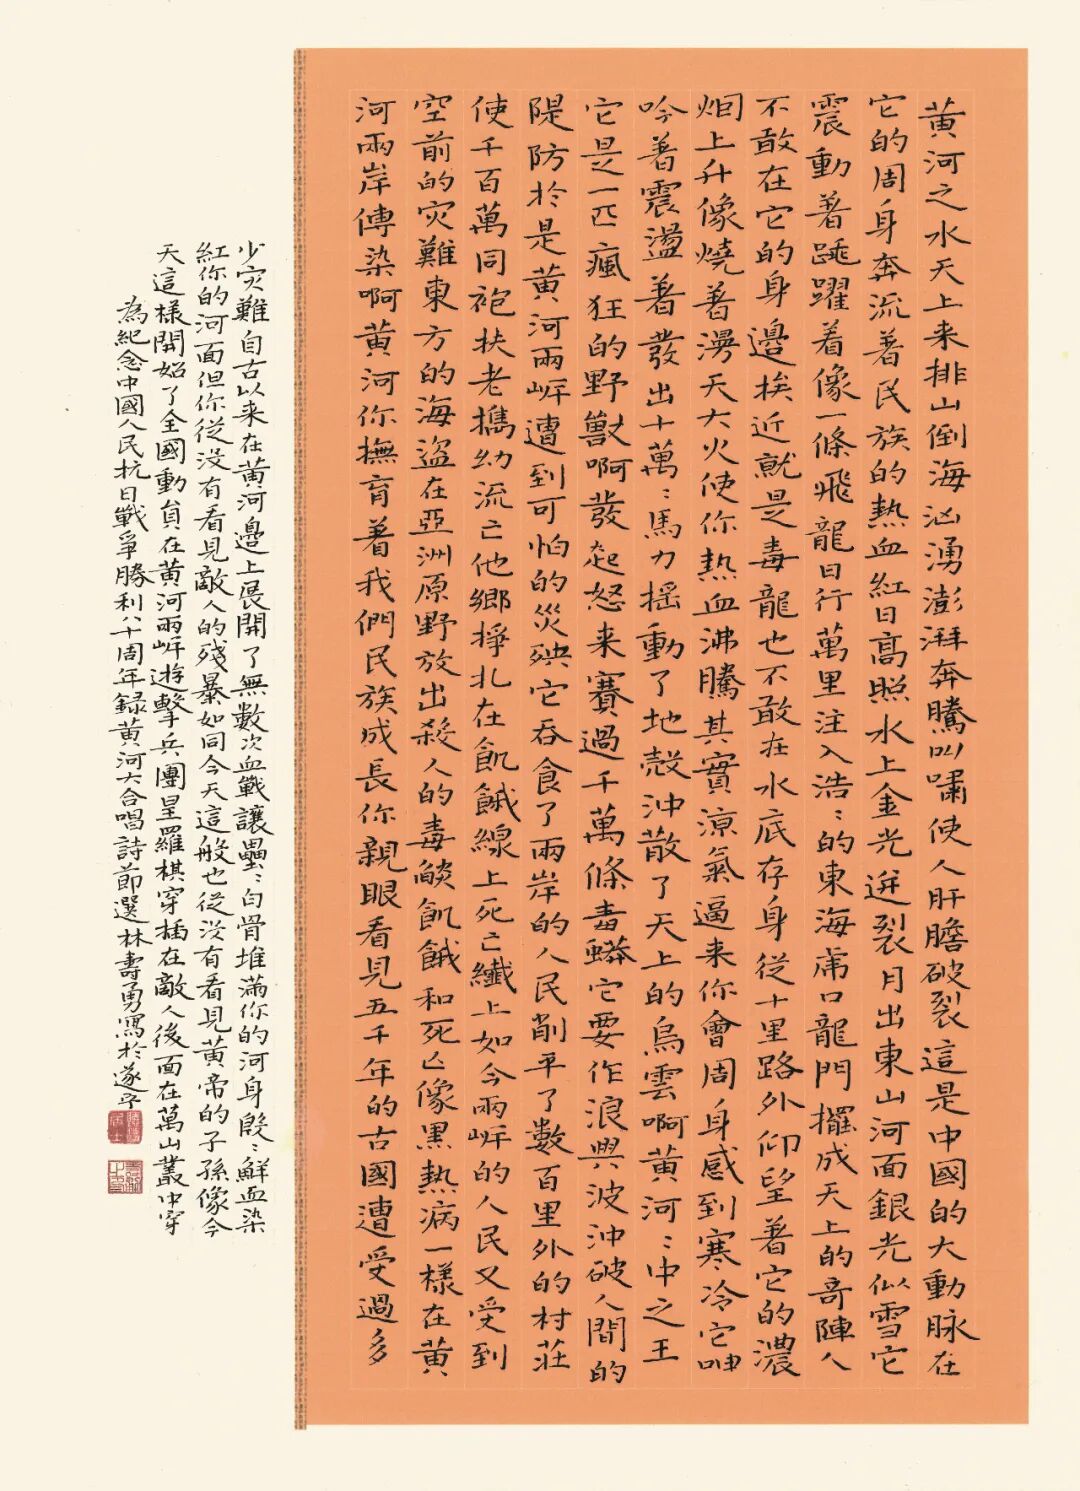 黄河之水天上来排山倒海汹湧澎湃奔騰叫嘯使人肝膽破裂這是中國的大動脉在
它的周身奔流著民族的熱血紅日高照水上金光迸裂月出東山河面銀光似雪它
震動著跳躍着像一條飛龍日行萬里注入浩〻的東海虎口龍門擺成天上的奇陣人
不敢在它的身邊挨近就是毒龍也不敢在水底存身從十里路外仰望着它的濃
烟上升像燒着漫天大火使你熱血沸騰其實涼氣逼来你會周身感到寒冷它呻
吟着震盪著發出十萬〻馬力摇動了地殼沖散了天上的烏雲啊黄河〻中之王
它是一匹瘋狂的野獸啊發起怒来賽過千萬條毒蟒它要作浪興波沖破人間的
隄防於是黄河兩岸遭到可怕的災殃它吞食了兩岸的人民削平了數百里外的村莊
使千百萬同袍扶老攜幼流亡他鄉掙扎在飢餓線上死亡纖上如今兩岸的人民又受到
空前的灾難東方的海盜在亞洲原野放出殺人的毒燄飢餓和死亡像黑熱病一樣在黄
河兩岸傳染啊黄河你撫育著我們民族成長你親眼看見五千年的古國遭受過多
少灾難自古以来在黄河邊上展開了無數次血戰讓壘〻白骨堆滿你的河身殷〻鮮血染
紅你的河面但你從没有看見敵人的殘暴如同今天這般也從没有看見黄帝的子孫像今
天這樣開始了全國動員在黄河兩岸遊擊兵團星羅棋穿插在敵人後面在萬山叢中穿
為紀念中國人民抗日戰爭勝利八十周年録黄河大合唱詩節選林壽勇寫於遂平